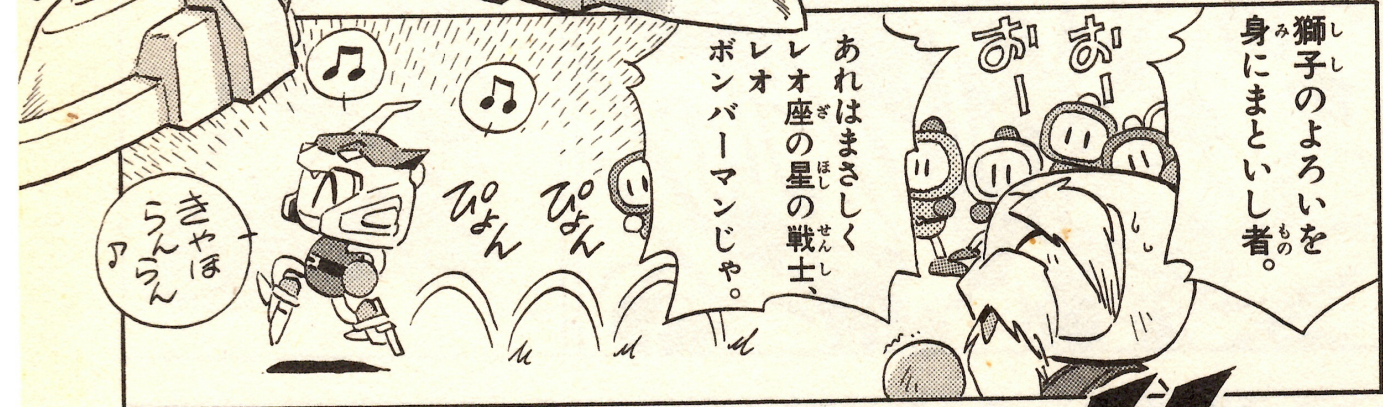 獅子のよろいを
身にまといし者。
おー
おー
あれはまさしく
レオ座の星の戦士、
レオ
ボンバーマンじゃ。
ぴょん
ぴょん
きゃほ
らんらん♪